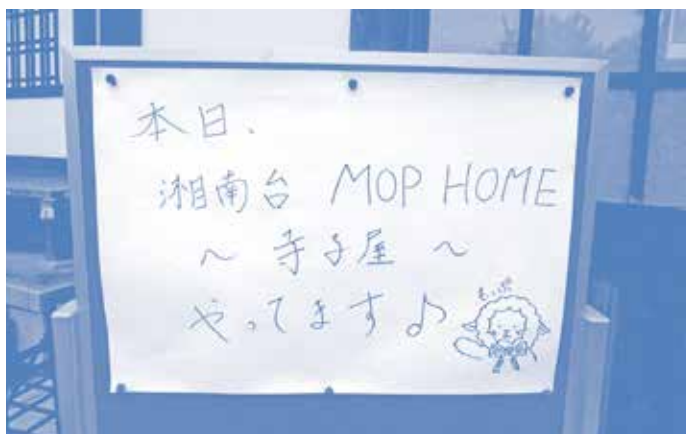 本日、
湘南台 MOP HOME
～ 寺子屋 ～
やってます♪
もっぷ